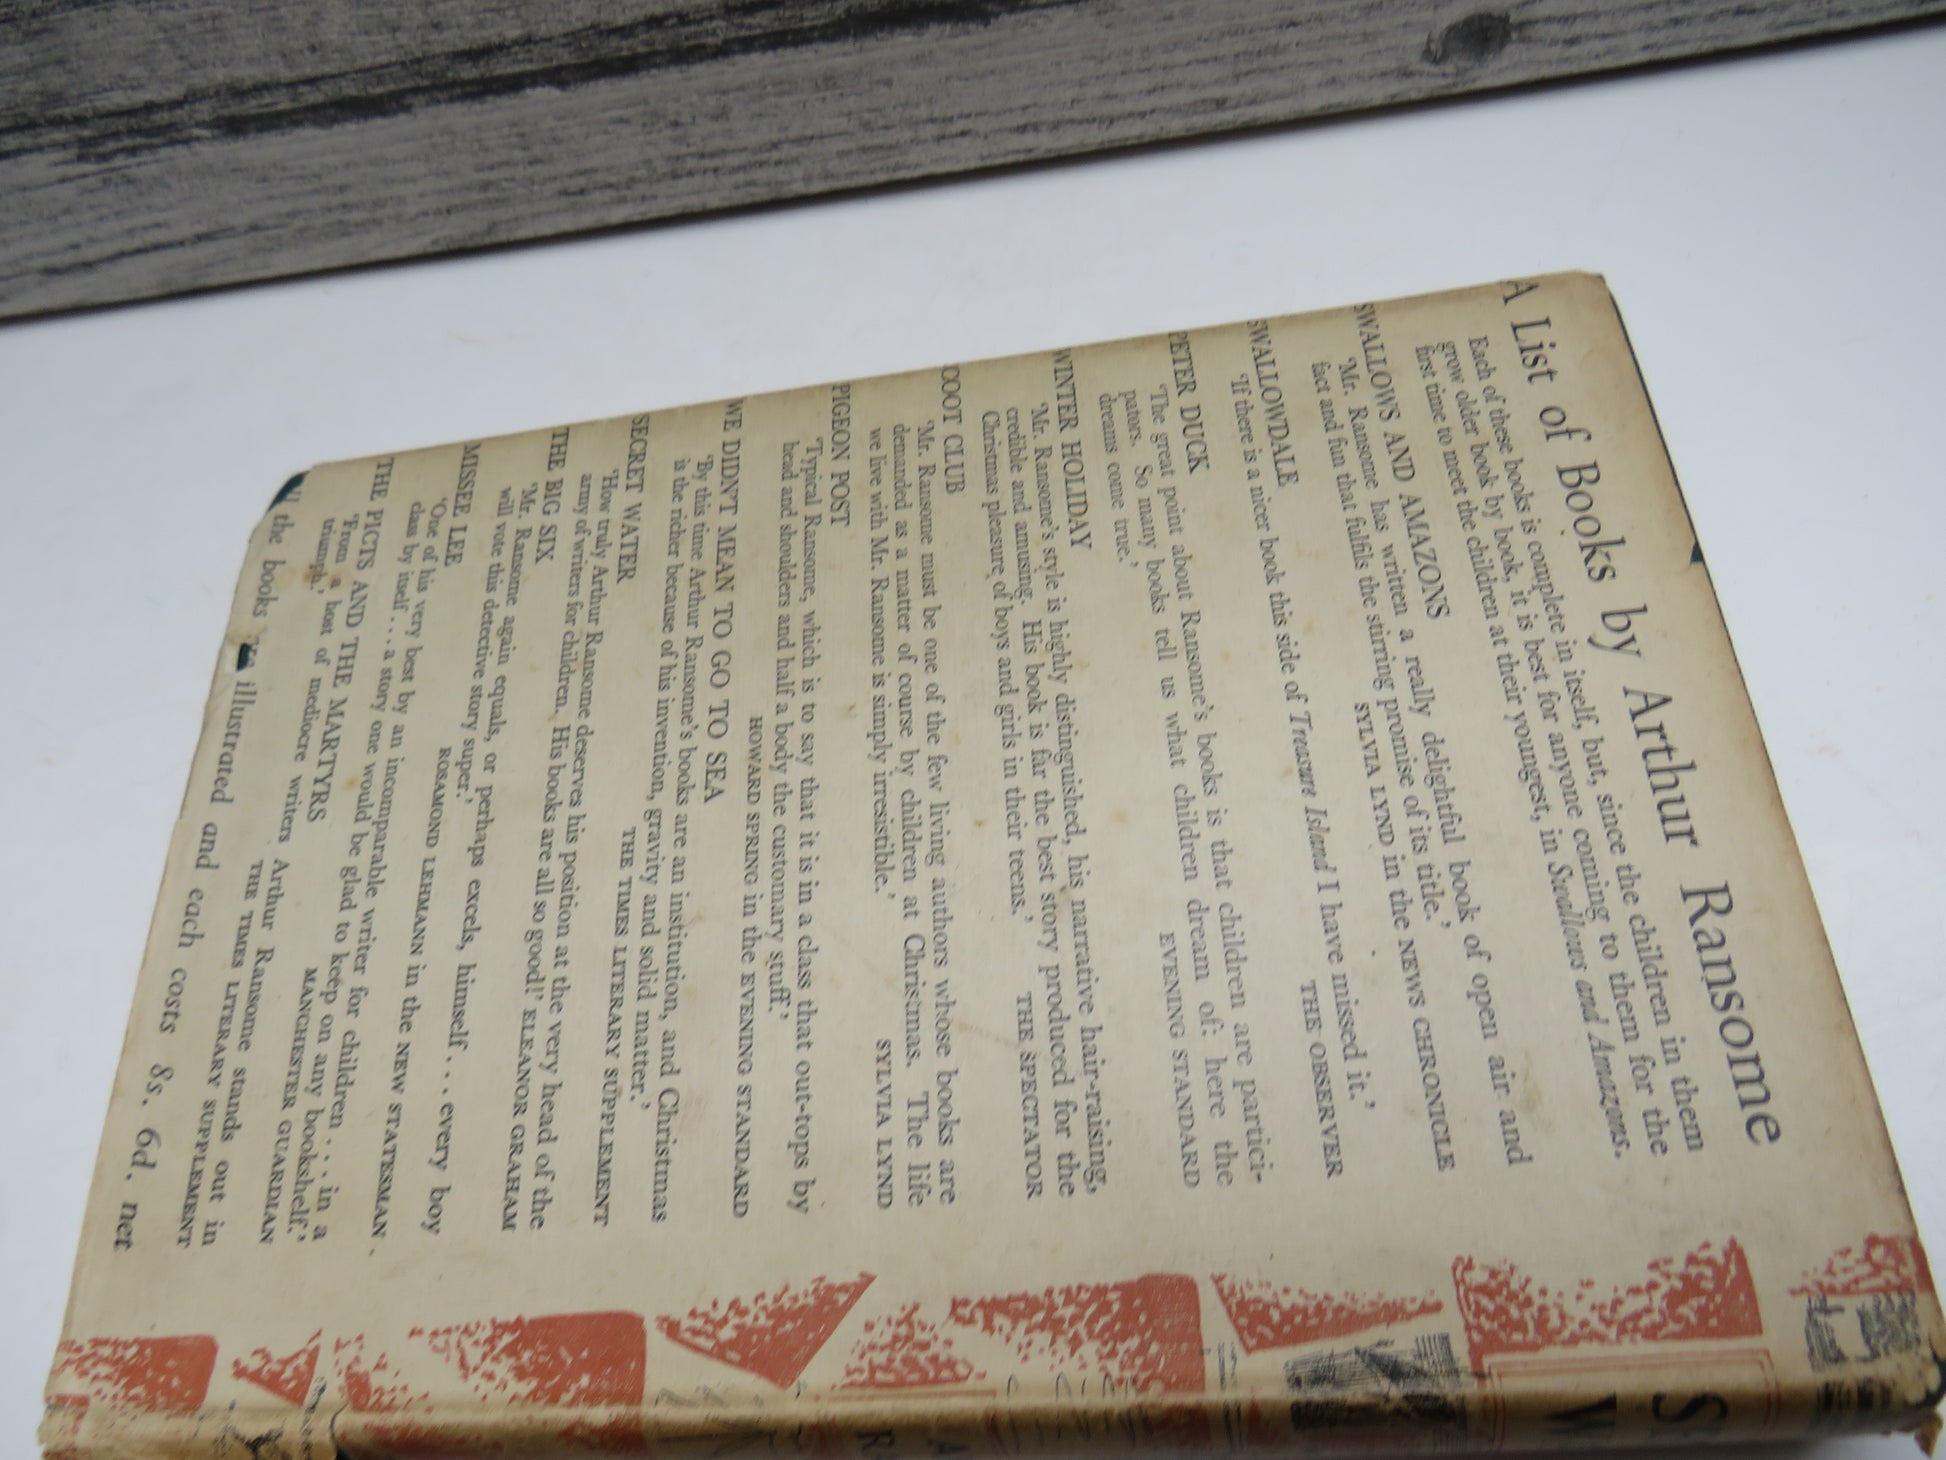 A List of Books by Arthur Ransome
Each of these books is complete in itself, but, since the children in them
grow older book by book, it is best for anyone coming to them for the
first time to meet the children at their youngest, in Swallows and Amazons.
SWALLOWS AND AMAZONS
'Mr. Ransome has written a really delightful book of open air and
fact and fun that fulfils the stirring promise of its title.'
SYLVIA LYND in the NEWS CHRONICLE
SWALLOWDALE
'If there is a nicer book this side of Treasure Island I have missed it.'
THE OBSERVER
PETER DUCK
'The great point about Ransome's books is that children are partici-
pators. So many books tell us what children dream of: here the
dreams come true.'
EVENING STANDARD
WINTER HOLIDAY
'Mr. Ransome's style is highly distinguished, his narrative hair-raising,
credible and amusing. His book is far the best story produced for the
Christmas pleasure of boys and girls in their teens.'
THE SPECTATOR
COOT CLUB
'Mr. Ransome must be one of the few living authors whose books are
demanded as a matter of course by children at Christmas. The life
we live with Mr. Ransome is simply irresistible.'
SYLVIA LYND
PIGEON POST
'Typical Ransome, which is to say that it is in a class that out-tops by
head and shoulders and half a body the customary stuff.'
HOWARD SPRING in the EVENING STANDARD
WE DIDN'T MEAN TO GO TO SEA
'By this time Arthur Ransome's books are an institution, and Christmas
is the richer because of his invention, gravity and solid matter.'
THE TIMES LITERARY SUPPLEMENT
SECRET WATER
'How truly Arthur Ransome deserves his position at the very head of the
army of writers for children. His books are all so good!' ELEANOR GRAHAM
THE BIG SIX
'Mr. Ransome again equals, or perhaps excels, himself . . . every boy
will vote this detective story super.'
ROSAMOND LEHMANN in the NEW STATESMAN
MISSEE LEE
'One of his very best by an incomparable writer for children . . . in a
class by itself . . . a story one would be glad to keep on any bookshelf.'
MANCHESTER GUARDIAN
THE PICTS AND THE MARTYRS
'From a host of mediocre writers Arthur Ransome stands out in
triumph.'
THE TIMES LITERARY SUPPLEMENT
the books are illustrated and each costs 8s. 6d. net
S
W
A
R